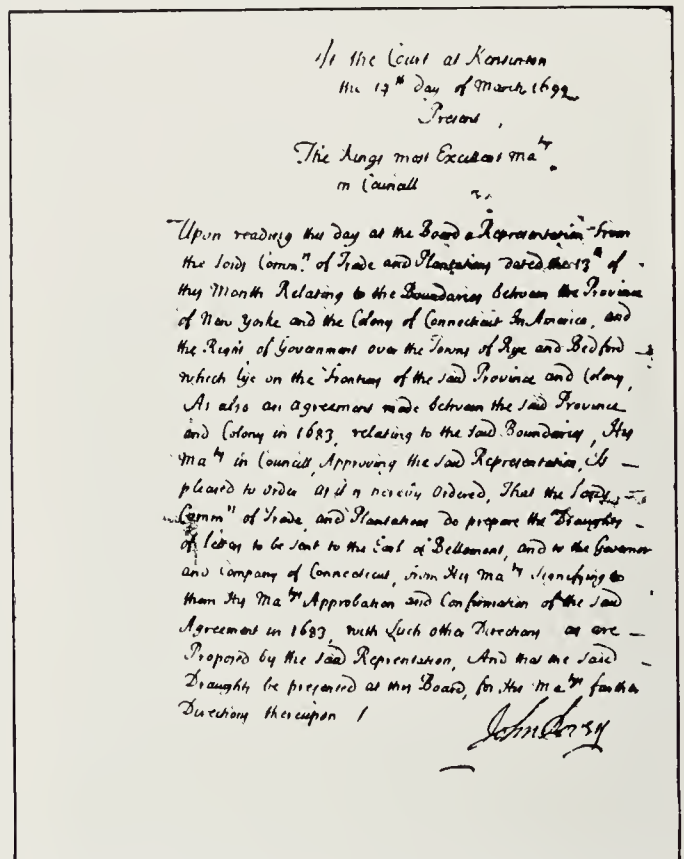 At the Court at Kensinton
the 17th day of March 1699
Present
The Kings most Excellent Maty
in Councill
Upon reading this day at the Board a Representation from
the Lords Commrs of Trade and Plantations dated the 13th of
this Month Relating to the Boundaries between the Province
of New Yorke and the Colony of Connecticut In America, and
the Right of Government over the Towns of Rye and Bedford
which lye on the Frontiers of the said Province and Colony,
As also an agreement made between the said Province
and Colony in 1683, relating to the said Boundaries, His
Maty in Councill, Approving the said Representation, Is
pleased to order as it is hereby Ordered, That the Lords
Commrs of Trade, and Plantations do prepare the Draughts
of Letters to be sent to the Earl of Bellomont, and to the Governor
and Company of Connecticut, from His Maty Signifying to
them His Matys Approbation and Confirmation of the said
Agreement in 1683, with Such other Directions as are
Proposed by the said Reprentation, And that the said
Draughts be presented at this Board, for His Matys farther
Directions thereupon /
John Povey